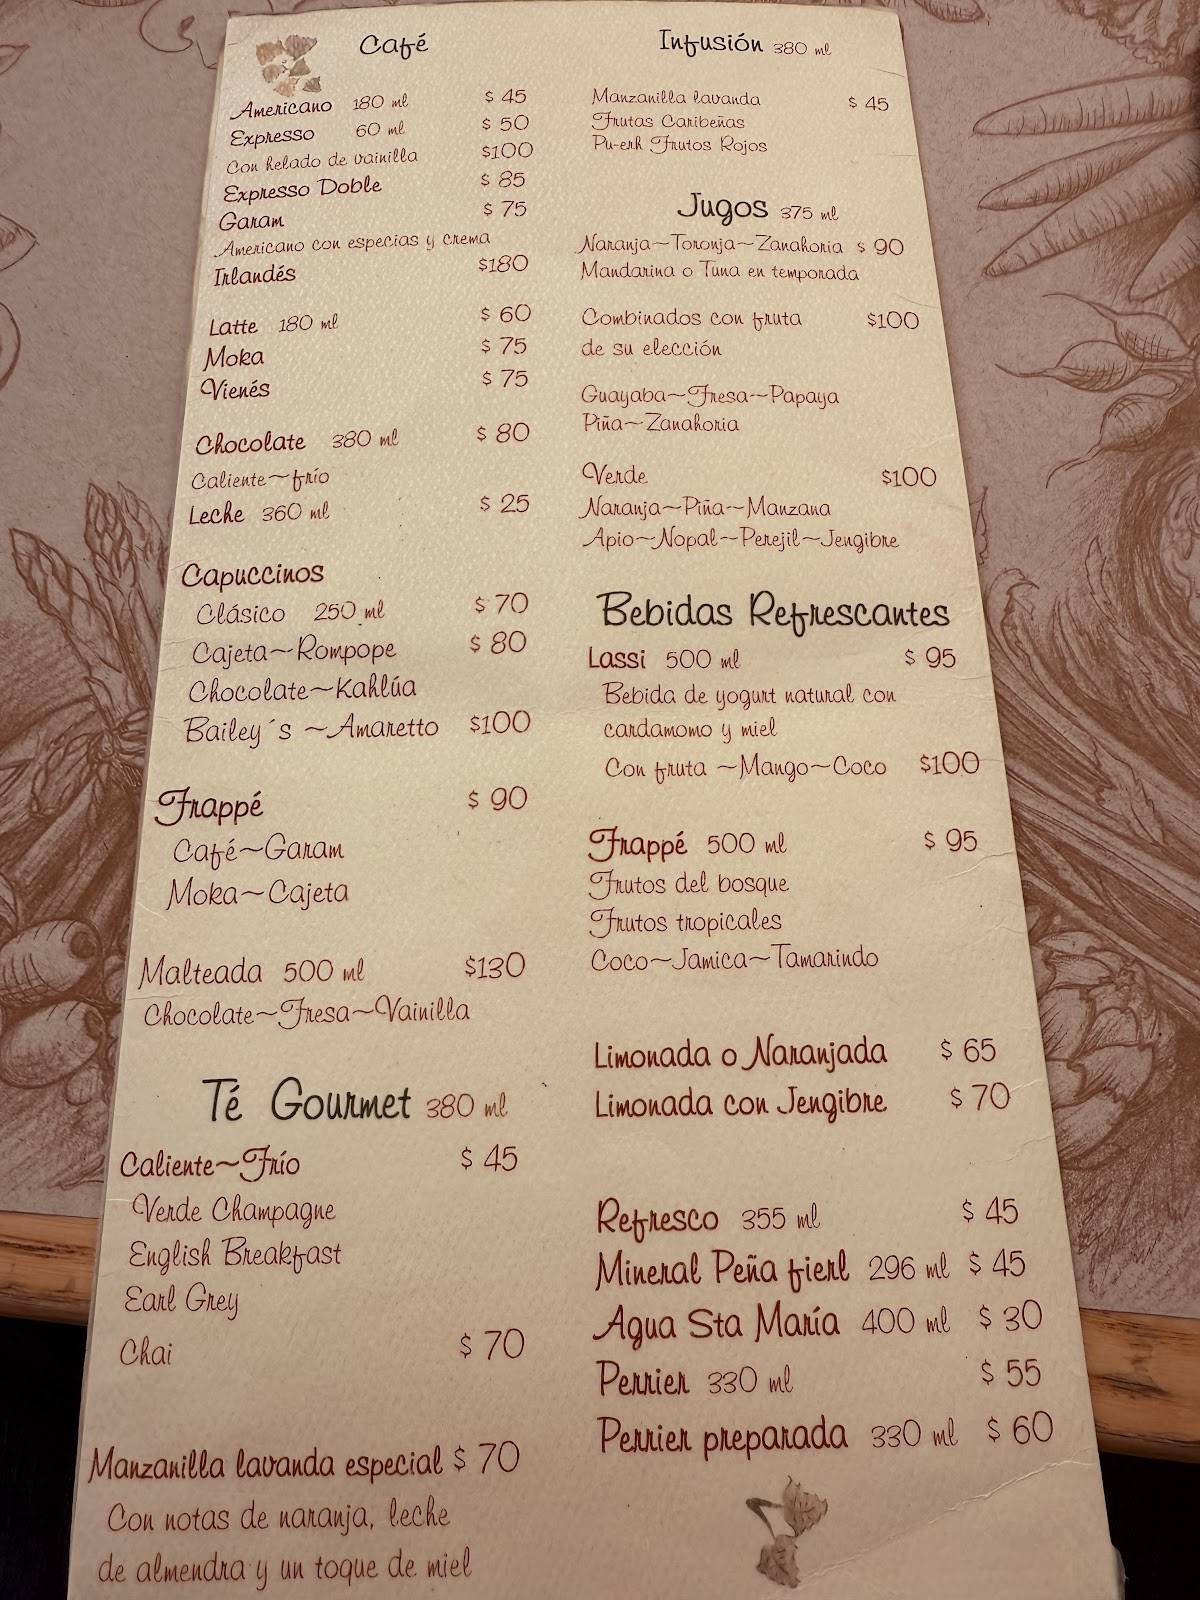 Café
Americano 180 ml $ 45
Expresso 60 ml $ 50
Con helado de vainilla $100
Expresso Doble $ 85
Garam $ 75
Americano con especias y crema
Irlandés $180
Latte 180 ml $ 60
Moka $ 75
Vienés $ 75
Chocolate 380 ml $ 80
Caliente~frío
Leche 360 ml $ 25
Capuccinos
Clásico 250 ml $ 70
Cajeta~Rompope $ 80
Chocolate~Kahlúa
Bailey´s ~Amaretto $100
Frappé $ 90
Café~Garam
Moka~Cajeta
Malteada 500 ml $130
Chocolate~Fresa~Vainilla
Té Gourmet 380 ml
Caliente~Frío $ 45
Verde Champagne
English Breakfast
Earl Grey
Chai $ 70
Manzanilla lavanda especial $ 70
Con notas de naranja, leche
de almendra y un toque de miel
Infusión 380 ml
Manzanilla lavanda $ 45
Frutas Caribeñas
Pu-erh Frutos Rojos
Jugos 375 ml
Naranja~Toronja~Zanahoria $ 90
Mandarina o Tuna en temporada
Combinados con fruta $100
de su elección
Guayaba~Fresa~Papaya
Piña~Zanahoria
Verde $100
Naranja~Piña~Manzana
Apio~Nopal~Perejil~Jengibre
Bebidas Refrescantes
Lassi 500 ml $ 95
Bebida de yogurt natural con
cardamomo y miel
Con fruta ~Mango~Coco $100
Frappé 500 ml $ 95
Frutos del bosque
Frutos tropicales
Coco~Jamica~Tamarindo
Limonada o Naranjada $ 65
Limonada con Jengibre $ 70
Refresco 355 ml $ 45
Mineral Peña fierl 296 ml $ 45
Agua Sta María 400 ml $ 30
Perrier 330 ml $ 55
Perrier preparada 330 ml $ 60